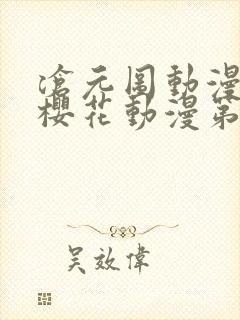 滄元图動漫
櫻花動漫第
吴效偉